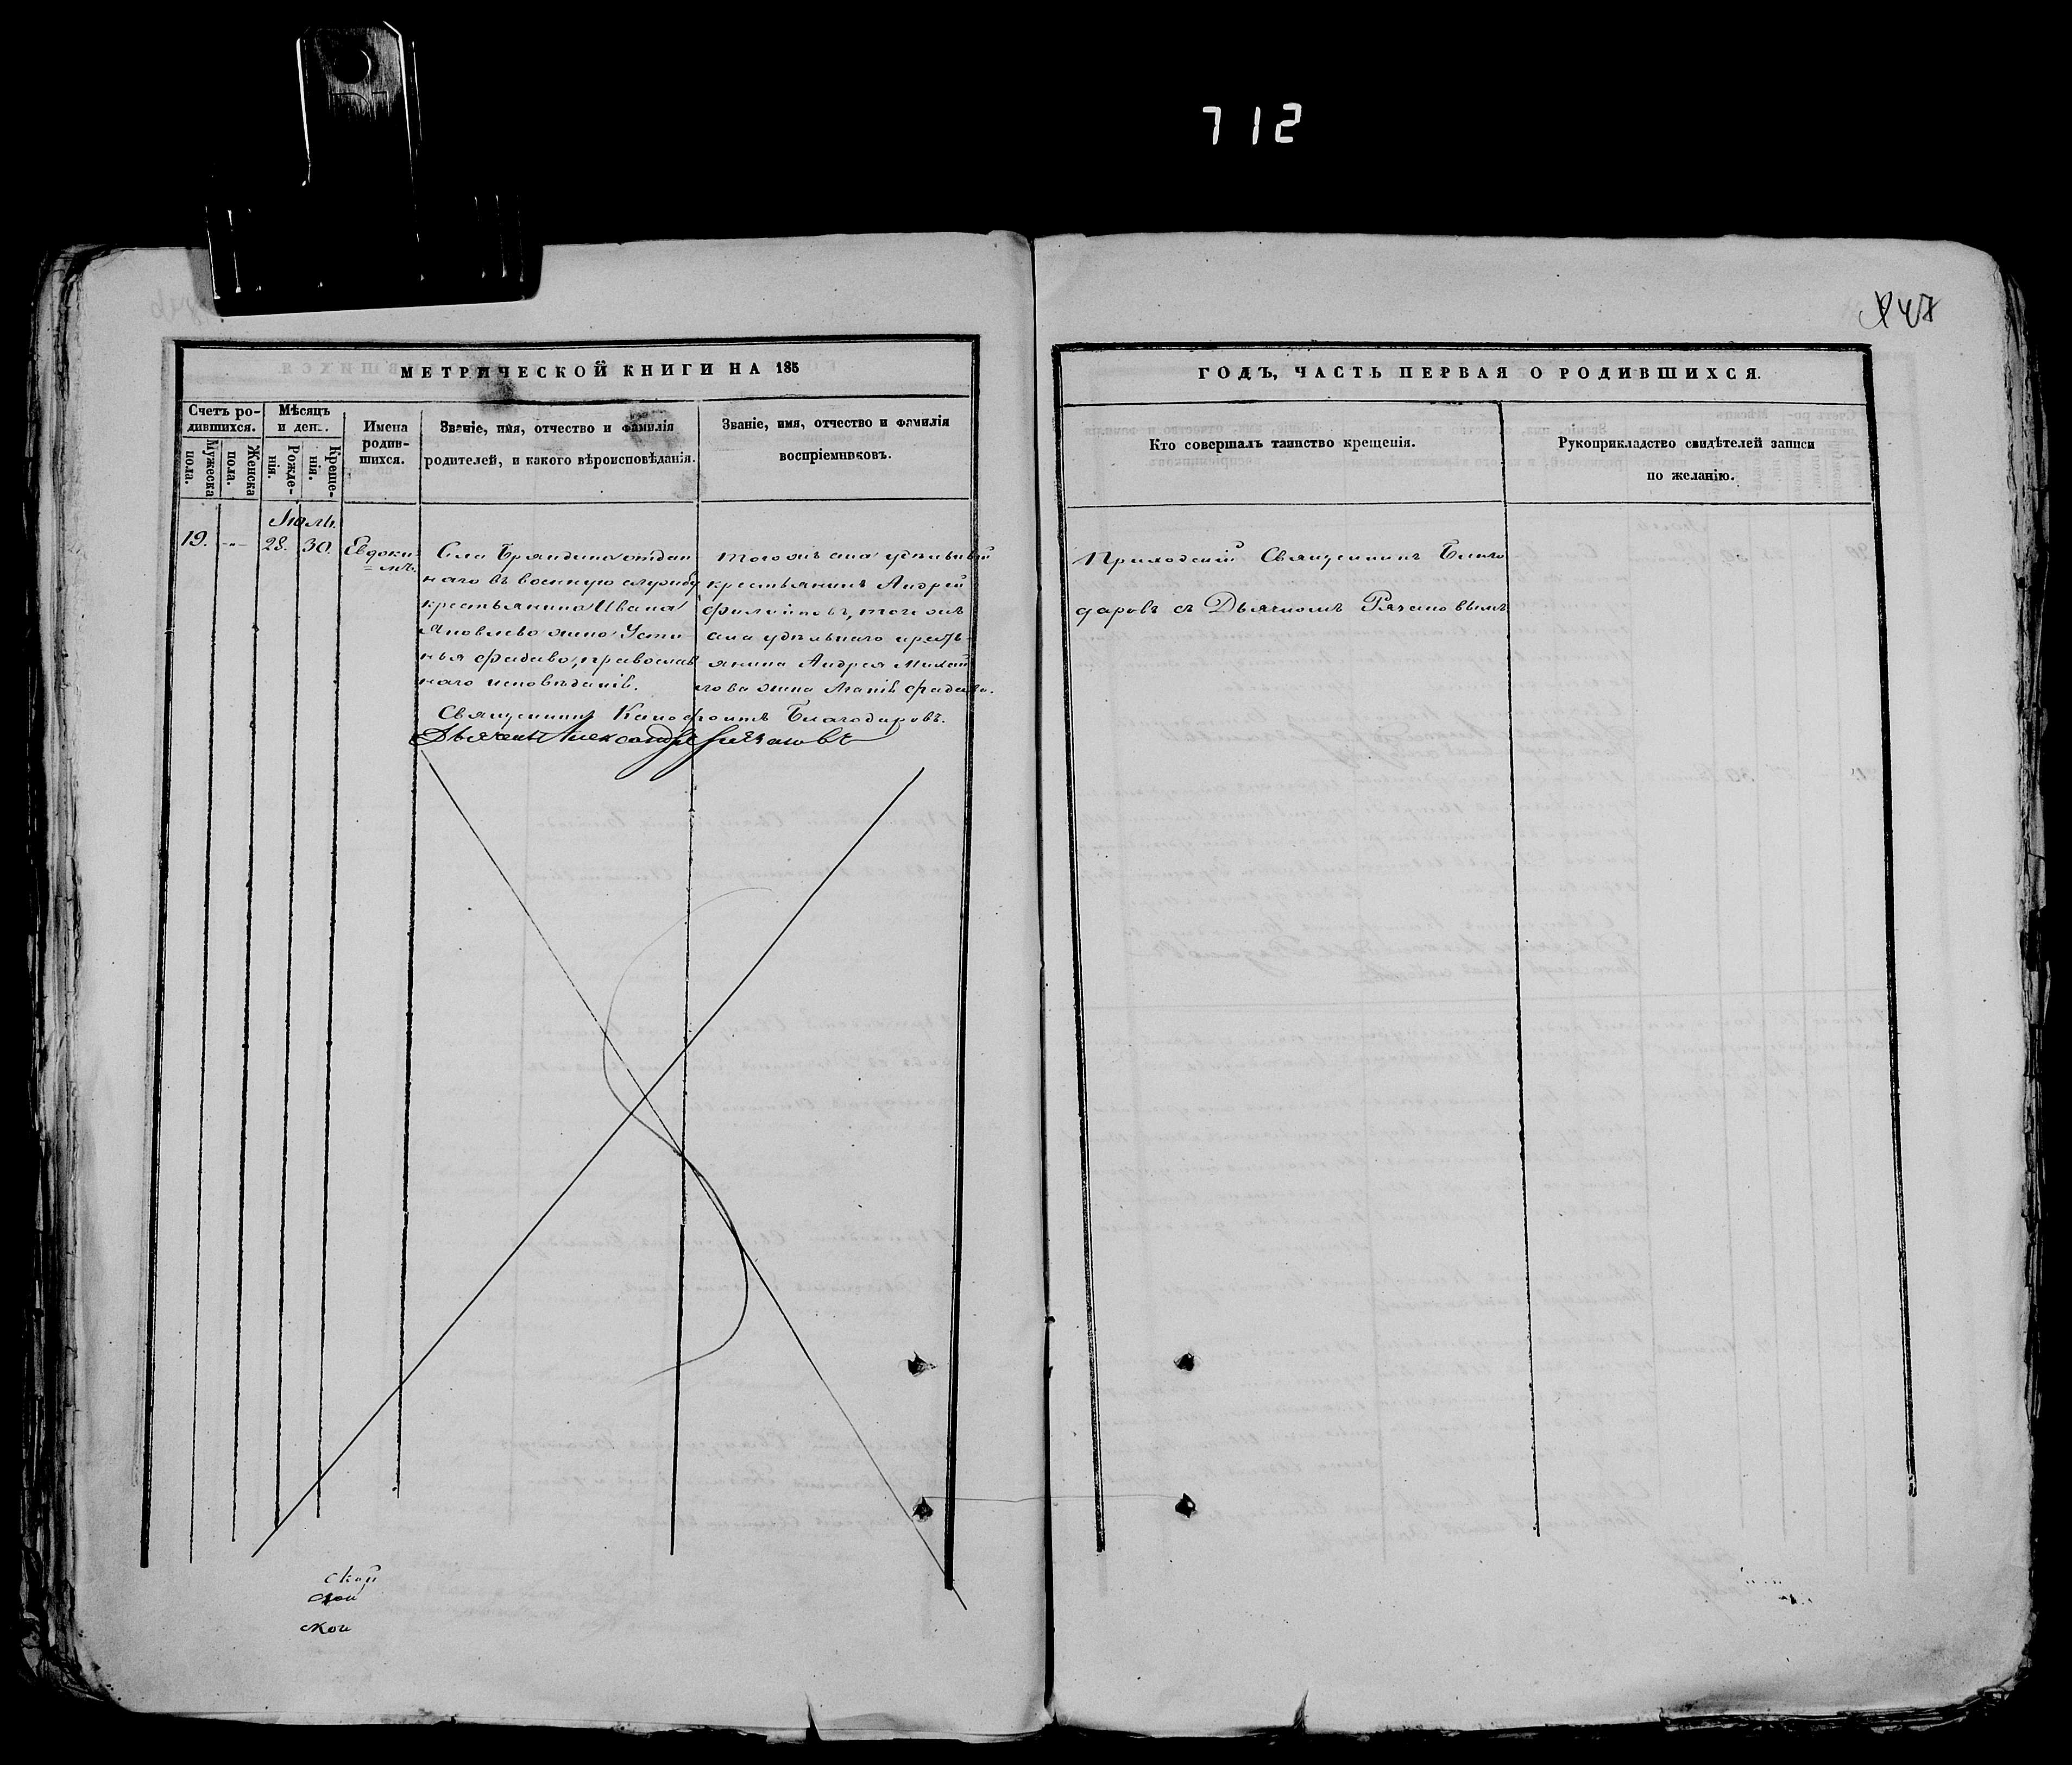 712
МЕТРИЧЕСКОЙ КНИГИ НА 185
Счетъ ро-
дившихся.
Мужеска
пола.
Женска
пола.
Мѣсяцъ
и ден
Рожде-
нія.
Креще-
нія.
Имена
родив-
шихся.
Званіе, имя, отчество и фамилія
родителей, и какого вѣроисповѣданія.
Званіе, имя, отчество и фамилія
воспріемниковъ.
19.
Іюль.
28. 30.
Евдоки-
мъ.
Села Брандина отдан
наго въ военную службу
крестьянина Ивана
Яковлева жена Усти-
нья православ
наго исповѣданія.
того жъ села удѣльный
крестьянинъ Андрей
Филиповъ, того жъ
села удѣльнаго кресть-
янина Андрея Михай
лова жена
Священникъ Благодаровъ.
Дьячекъ Александръ Рязановъ
ской
ской
ГОДЪ, ЧАСТЬ ПЕРВАЯ О РОДИВШИХСЯ.
Кто совершалъ таинство крещенія.
Рукоприкладство свидѣтелей записи
по желанію.
Приходскій Священникъ Благо
даровъ съ Дьячкомъ Рязановымъ